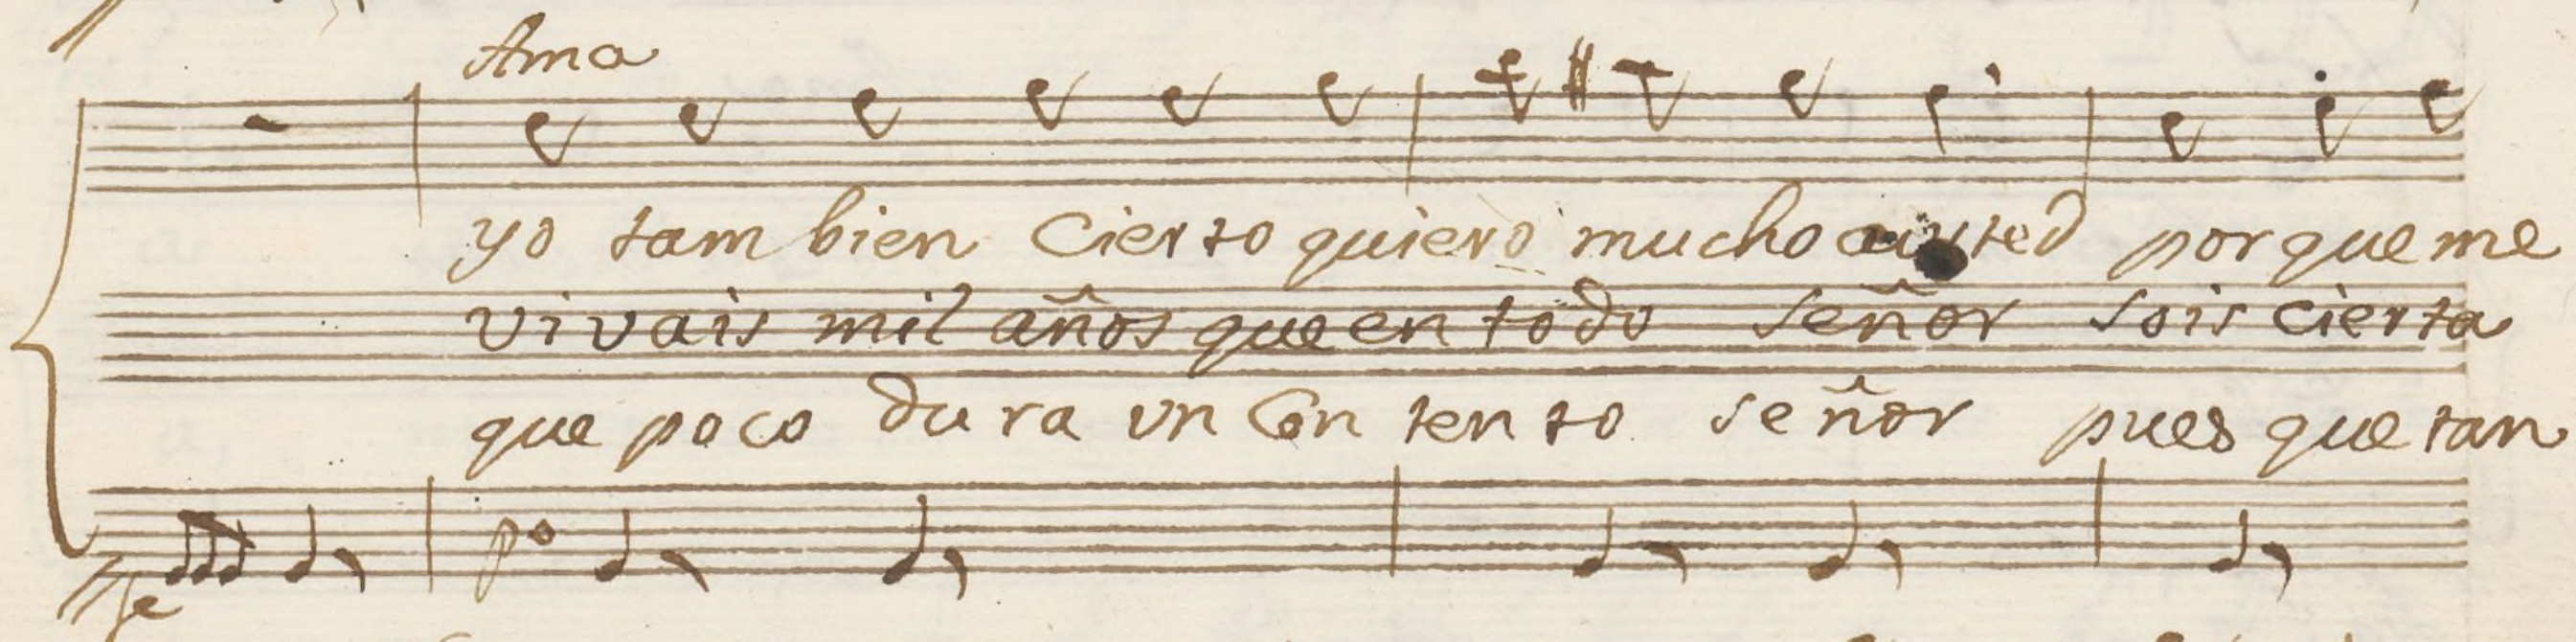 Ama
yo tam bien Cierto quiero mucho a usted porque me
vivais mil años que en todo señor sois cierta
que poco du ra un Con ten to señor pues que tan
po
fe